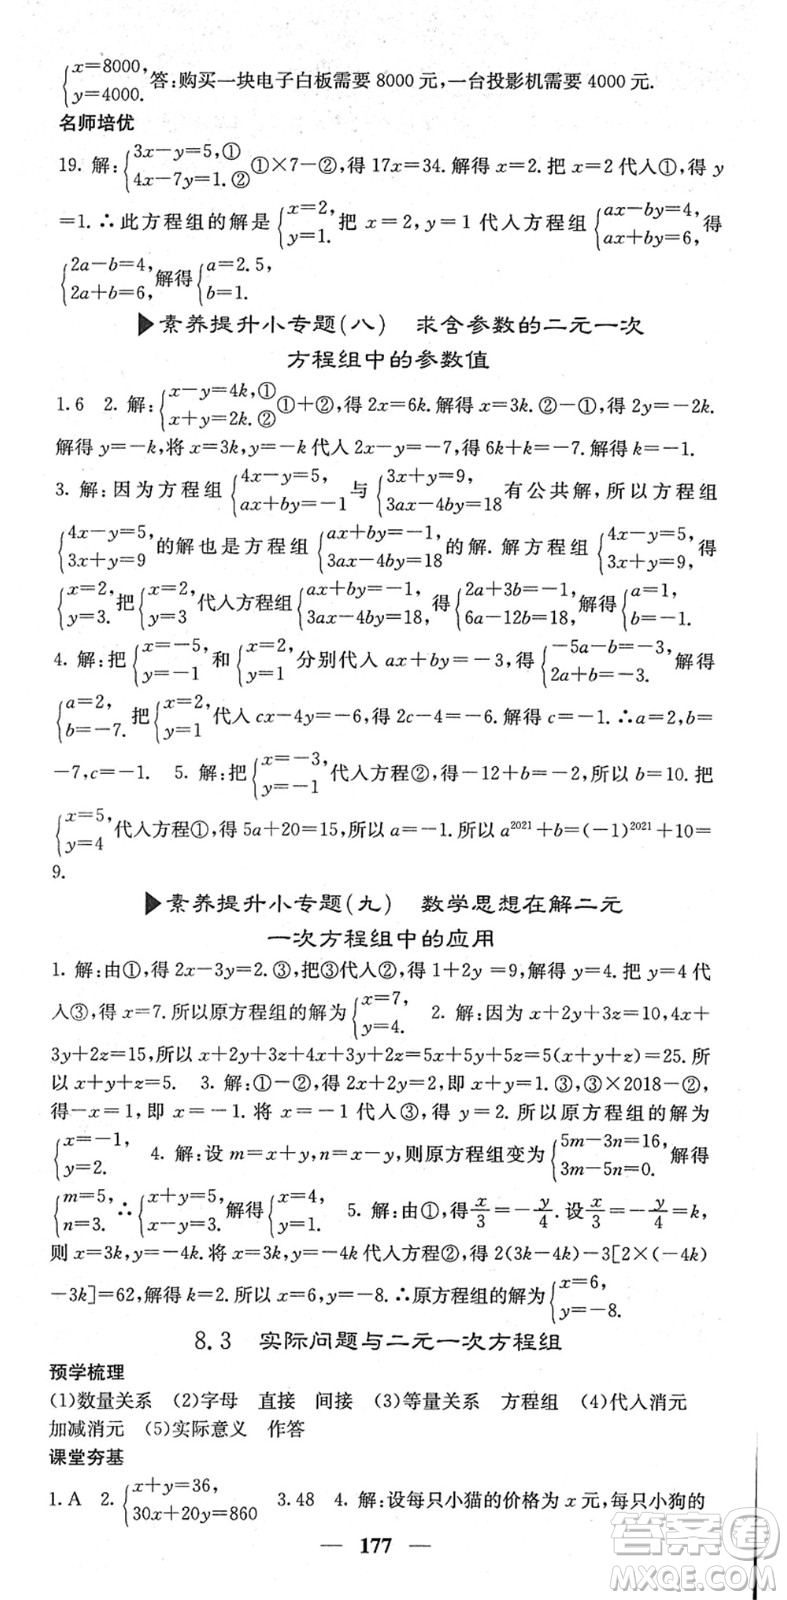 {x=8000, y=4000. 答:购买一块电子白板需要 8000 元,一台投影机需要 4000 元.
名师培优
19. 解:{3x−y=5,① 4x−7y=1.② ①×7−②,得 17x=34. 解得 x=2. 把 x=2 代入①,得 y
=1. ∴此方程组的解是{x=2, y=1. 把 x=2, y=1 代入方程组{ax−by=4, ax+by=6, 得
{2a−b=4, 2a+b=6, 解得{a=2.5, b=1.
▶素养提升小专题(八) 求含参数的二元一次
方程组中的参数值
1. 6 2. 解:{x−y=4k,① x+y=2k.② ①+②,得 2x=6k. 解得 x=3k. ②−①,得 2y=−2k.
解得 y=−k,将 x=3k,y=−k 代入 2x−y=−7,得 6k+k=−7. 解得 k=−1.
3. 解:因为方程组{4x−y=5, ax+by=−1 与{3x+y=9, 3ax−4by=18 有公共解,所以方程组
{4x−y=5, 3x+y=9 的解也是方程组{ax+by=−1, 3ax−4by=18 的解. 解方程组{4x−y=5, 3x+y=9, 得
{x=2, y=3. 把{x=2, y=3 代入方程组{ax+by=−1, 3ax−4by=18, 得{2a+3b=−1, 6a−12b=18, 解得{a=1, b=−1.
4. 解:把{x=−5, y=−1 和{x=2, y=1 分别代入 ax+by=−3,得{−5a−b=−3, 2a+b=−3. 解得
{a=2, b=−7. 把{x=2, y=1 代入 cx−4y=−6,得 2c−4=−6. 解得 c=−1. ∴a=2,b=
−7,c=−1. 5. 解:把{x=−3, y=−1 代入方程②,得−12+b=−2,所以 b=10. 把
{x=5, y=4 代入方程①,得 5a+20=15,所以 a=−1. 所以 a²⁰²¹+b=(−1)²⁰²¹+10=
9.
▶素养提升小专题(九) 数学思想在解二元
一次方程组中的应用
1. 解:由①,得 2x−3y=2. ③,把③代入②,得 1+2y =9,解得 y=4. 把 y=4 代
入③,得 x=7. 所以原方程组的解为{x=7, y=4. 2. 解:因为 x+2y+3z=10,4x+
3y+2z=15,所以 x+2y+3z+4x+3y+2z=5x+5y+5z=5(x+y+z)=25. 所
以 x+y+z=5. 3. 解:①−②,得 2x+2y=2,即 x+y=1. ③,③×2018−②,
得−x=1,即 x=−1. 将 x=−1 代入③,得 y=2. 所以原方程组的解为
{x=−1, y=2. 4. 解:设 m=x+y,n=x−y,则原方程组变为{5m−3n=16, 3m−5n=0. 解得
{m=5, n=3. ∴{x+y=5, x−y=3. 解得{x=4, y=1. 5. 解:由①,得x/3=−y/4. 设x/3=−y/4=k,
则 x=3k,y=−4k. 将 x=3k,y=−4k 代入方程②,得 2(3k−4k)−3[2×(−4k)
−3k]=62,解得 k=2. 所以 x=6,y=−8. ∴原方程组的解为{x=6, y=−8.
8.3 实际问题与二元一次方程组
预学梳理
(1)数量关系 (2)字母 直接 间接 (3)等量关系 方程组 (4)代入消元
加减消元 (5)实际意义 作答
课堂夯基
1. A 2. {x+y=36, 30x+20y=860 3. 48 4. 解:设每只小猫的价格为 x 元,每只小狗的
— 177 —
答案圈
MXQE.COM